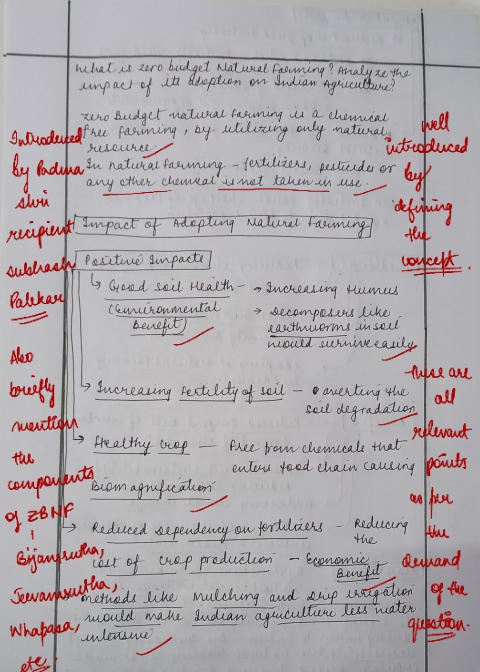 What is zero budget Natural Farming? Analyze the
impact of its adoption on Indian Agriculture?
zero Budget natural farming is a chemical
free farming, by utilizing only natural
resource.
In natural farming - fertilizers, pesticides or
any other chemical is not taken in use.
Impact of Adopting Natural Farming
Positive Impacts
Good soil Health - → Increasing Humus
(Environmental Benefit)
→ Decomposers like
earthworms in soil
would survive easily
Increasing fertility of soil - averting the
soil degradation
Healthy crop - Free from chemicals that
enters food chain causing
Biomagnification
Reduced Dependency on fertilizers - Reducing
the
cost of crop production - Economic
Benefit
methods like Mulching and drip irrigation
would make Indian agriculture less water
intensive
Introduced
by Padma
Shri
recipient
subhash
Palekar
Also
briefly
mention
the
components
of ZBNF
!
Bijamrutha,
Jeevamrutha,
Whapasa,
etc.
well
introduced
by
defining
the
concept.
These are
all
relevant
points
as per
the
Demand
of the
question.